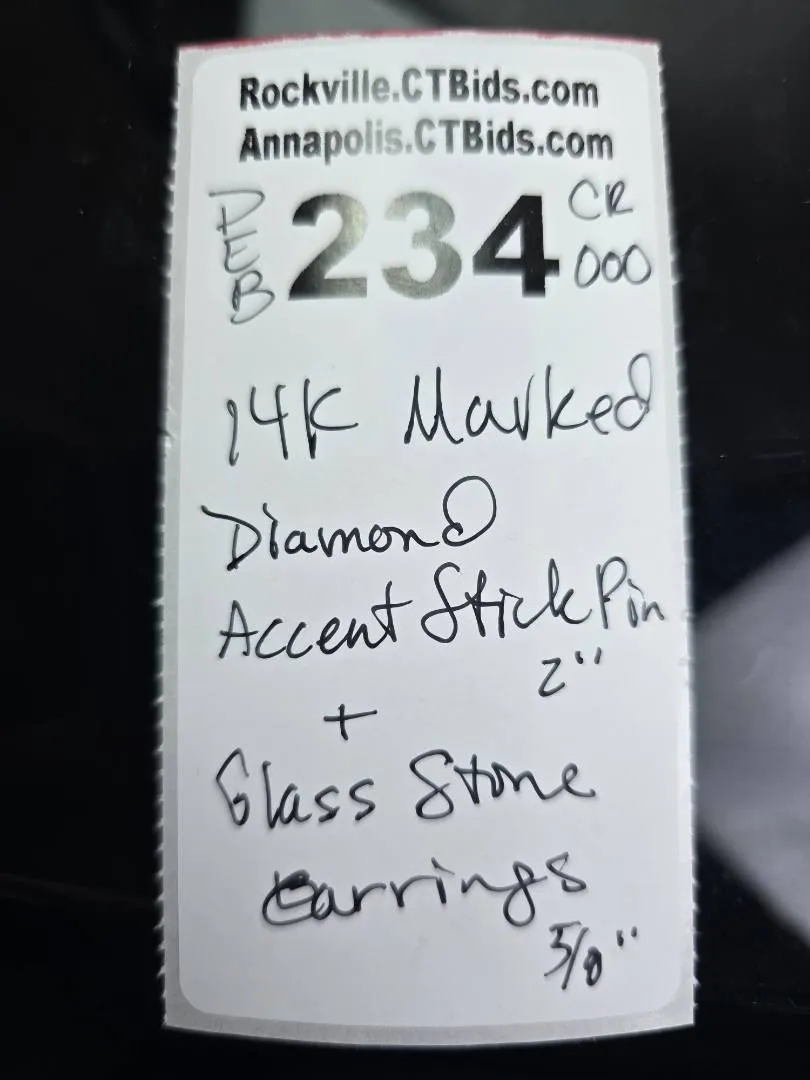 Rockville.CTBids.com
Annapolis.CTBids.com
DEB 234 CR
000
14K Marked
Diamond
Accent Stick Pin
2"
+
Glass Stone
Earrings
5/8"